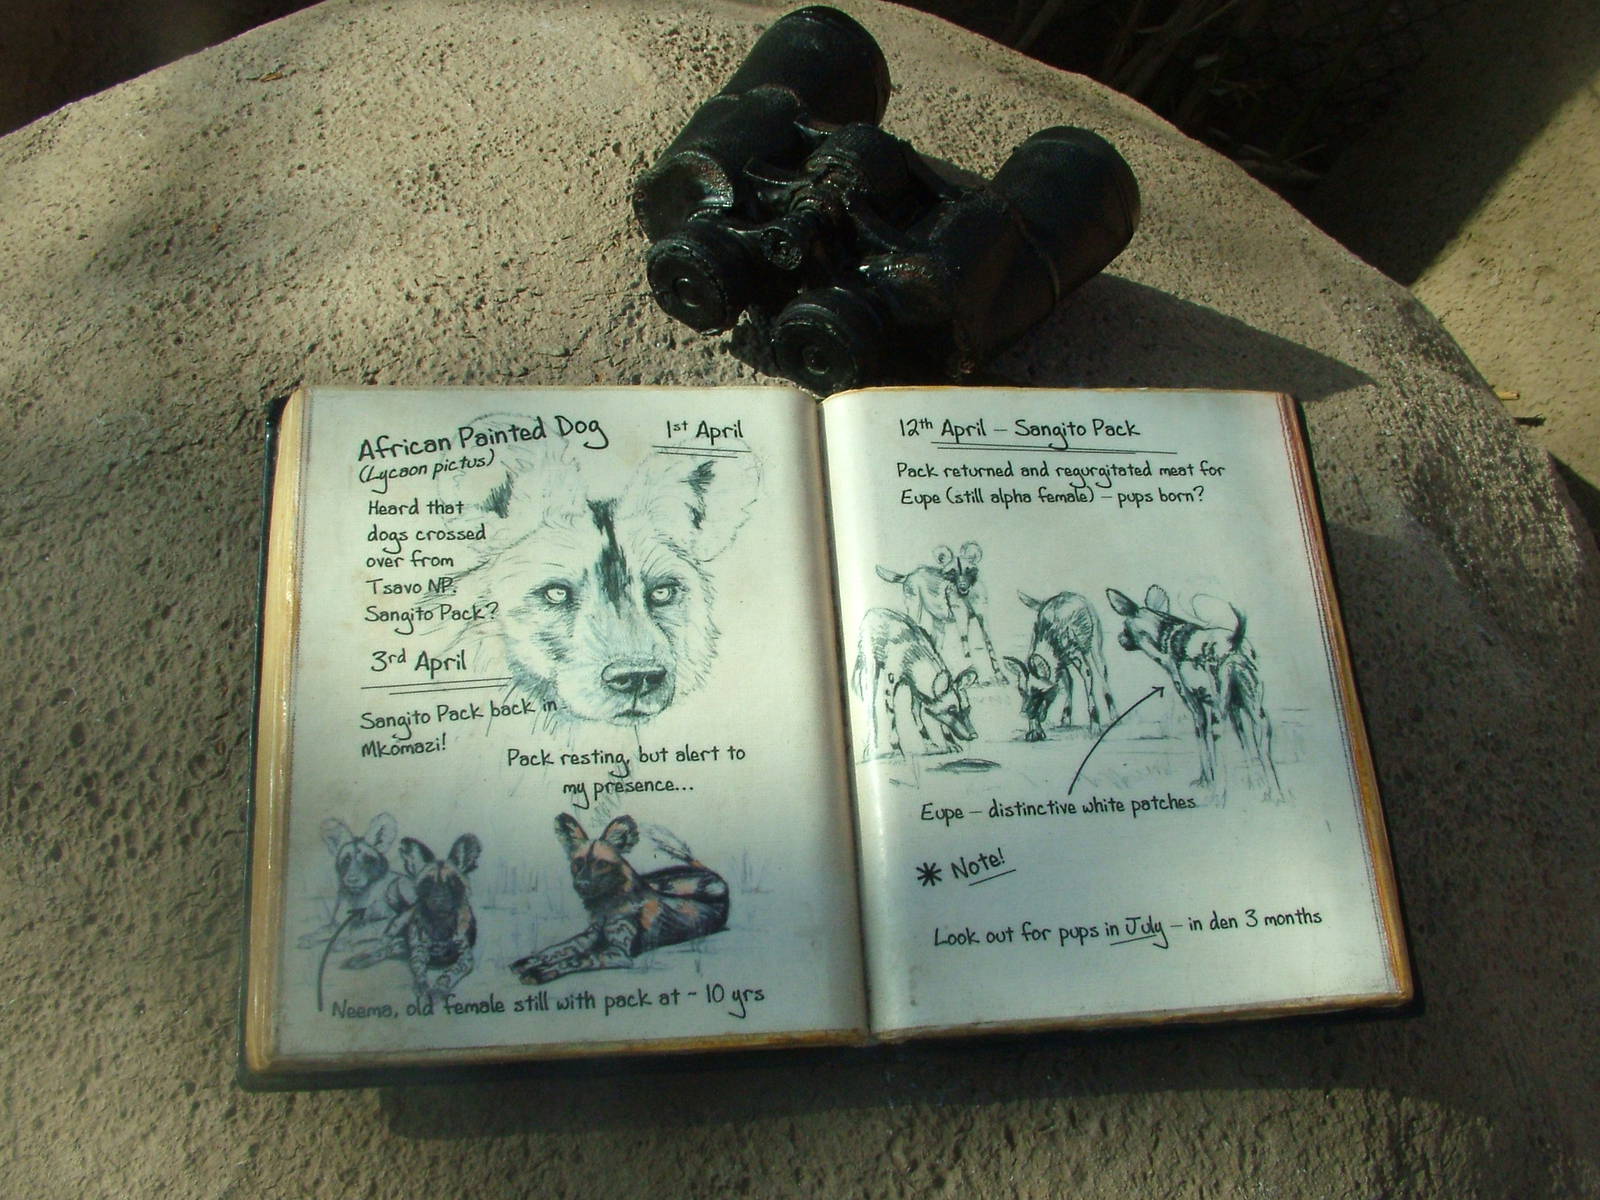 African Painted Dog
(Lycaon pictus)
1st April
Heard that
dogs crossed
over from
Tsavo NP.
Sangito Pack?
3rd April
Sangito Pack back in
Mkomazi!
Pack resting, but alert to
my presence...
Neema, old female still with pack at ~ 10 yrs
12th April – Sangito Pack
Pack returned and regurgitated meat for
Eupe (still alpha female) – pups born?
Eupe – distinctive white patches
* Note!
Look out for pups in July – in den 3 months